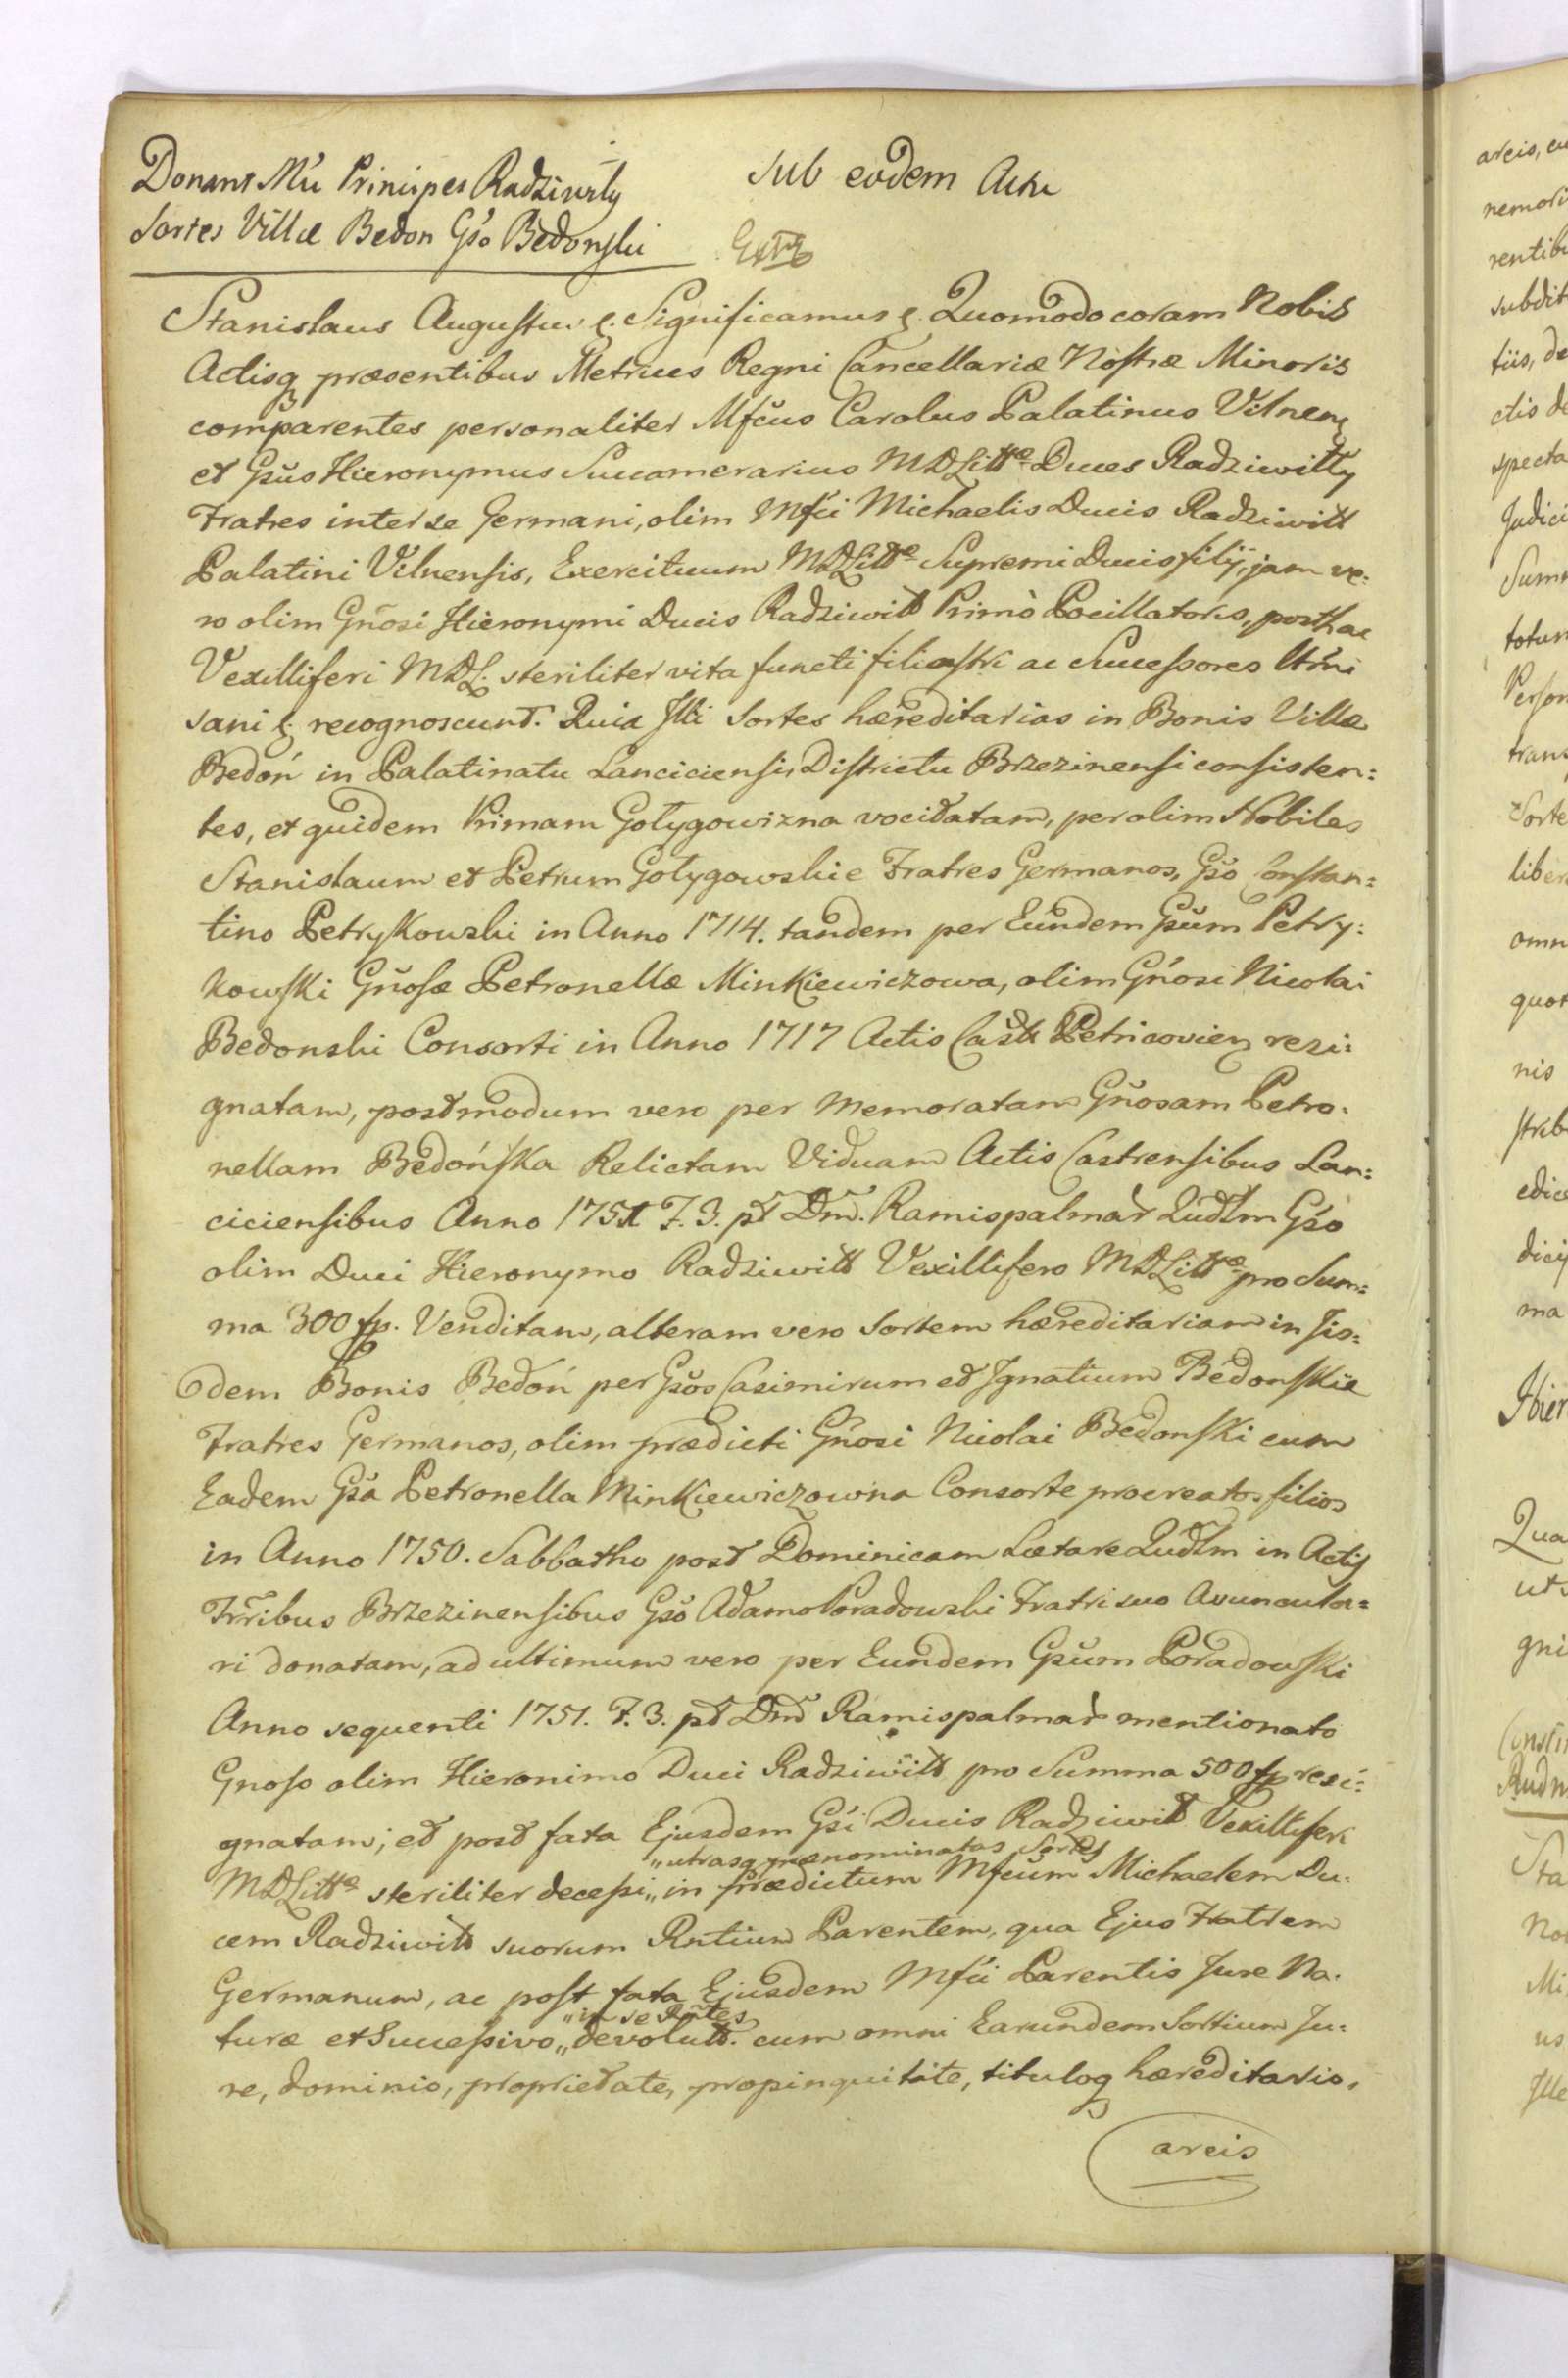 Donant Mci Principes Radziwiły
Sub eodem Actu
Sortes Villæ Bedon Gso Bedonski
Stanislaus Augustus &. Significamus &. Quomodo coram Nobis
Actisq præsentibus Metrices Regni Cancellariæ Nostræ Minoris
comparentes personaliter Mfcus Carolus Palatinus Vilnen
et Gsus Hieronymus Succamerarius MDLittæ Duces Radziwiłły
Fratres inter se Germani, olim Mfci Michaelis Ducis Radziwiłł
Palatini Vilnensis, Exercituum MDLittæ Supremi Ducis filij, jam ve:
ro olim Gnosi Hieronymi Ducis Radziwiłł Primò Pocillatoris, posthac
Vexilliferi MDL. steriliter vita functi filiastri ac Successores Utrni
sani & recognoscunt. Quia Illi Sortes hæreditarias in Bonis Villæ
Bedoń in Palatinatu Lanciciensi, Districtu Brzezinensi consisten:
tes, et quidem Primam Gołygowizna vocitatam, per olim Nobiles
Stanislaum et Petrum Gołygowskie Fratres Germanos, Gso Constan:
tino Petrykowski in Anno 1714. tandem per Eundem Gsum Petry:
kowski Gnosæ Petronellæ Minkiewiczowa, olim Gnosi Nicolai
Bedonski Consorti in Anno 1717 Actis Castr Petricovien resi:
gnatam, postmodum vero per Memoratam Gnosam Petro:
nellam Bedońska Relictam Viduam Actis Castrensibus Lan:
ciciensibus Anno 1751 F. 3. pt Dnd. Ramispalmar Qudtm Gso
olim Duci Hieronymo Radziwiłł Vexillifero MDLittæ pro Sum:
ma 300 fp. Venditam, alteram vero Sortem hæreditariam in Iis:
dem Bonis Bedoń per Gsos Casimirum et Ignatium Bedonskie
Fratres Germanos, olim prædicti Gnosi Nicolai Bedonski cum
Eadem Gsa Petronella Minkiewiczowna Consorte procreatos filios
in Anno 1750. Sabbatho post Dominicam Lætare Qudtm in Actis
Trribus Brzezinensibus Gso Adamo Poradowski Fratri suo Avuncula=
ri donatam, ad ultimum vero per Eundem Gsum Poradowski
Anno sequenti 1751. F. 3. pt Dnd Ramispalmar mentionato
Gnoso olim Hieronimo Duci Radziwiłł pro Summa 500 fp resi:
gnatam; et post fata Ejusdem Gsi Ducis Radziwiłł Vexilliferi
„utrasq prænominatas Sortes
MDLittæ steriliter decessi „ in prædictum Mfcum Michaelem Du:
cem Radziwiłł suorum Rntium Parentem, qua Ejus Fratrem
Germanum, ac post fata Ejusdem Mfci Parentis Jure Na:
„in se Rntes
turæ et Successivo „ devolut. cum omni Earundem Sortium Ju:
re, dominio, proprietate, propinquitate, tituloq hæreditario,
areis
arcis, cu
nemori
rentibu
subdit
tiis, de
ctis de
specta
Judici
Summ
totum
Person
trans
Sorte
liber
omn
quot
nis
strib
edice
dicij
ma
Hier
Qua
uts
gni
Constin
Rudn
Sta
Nos
Mi
us
Ille